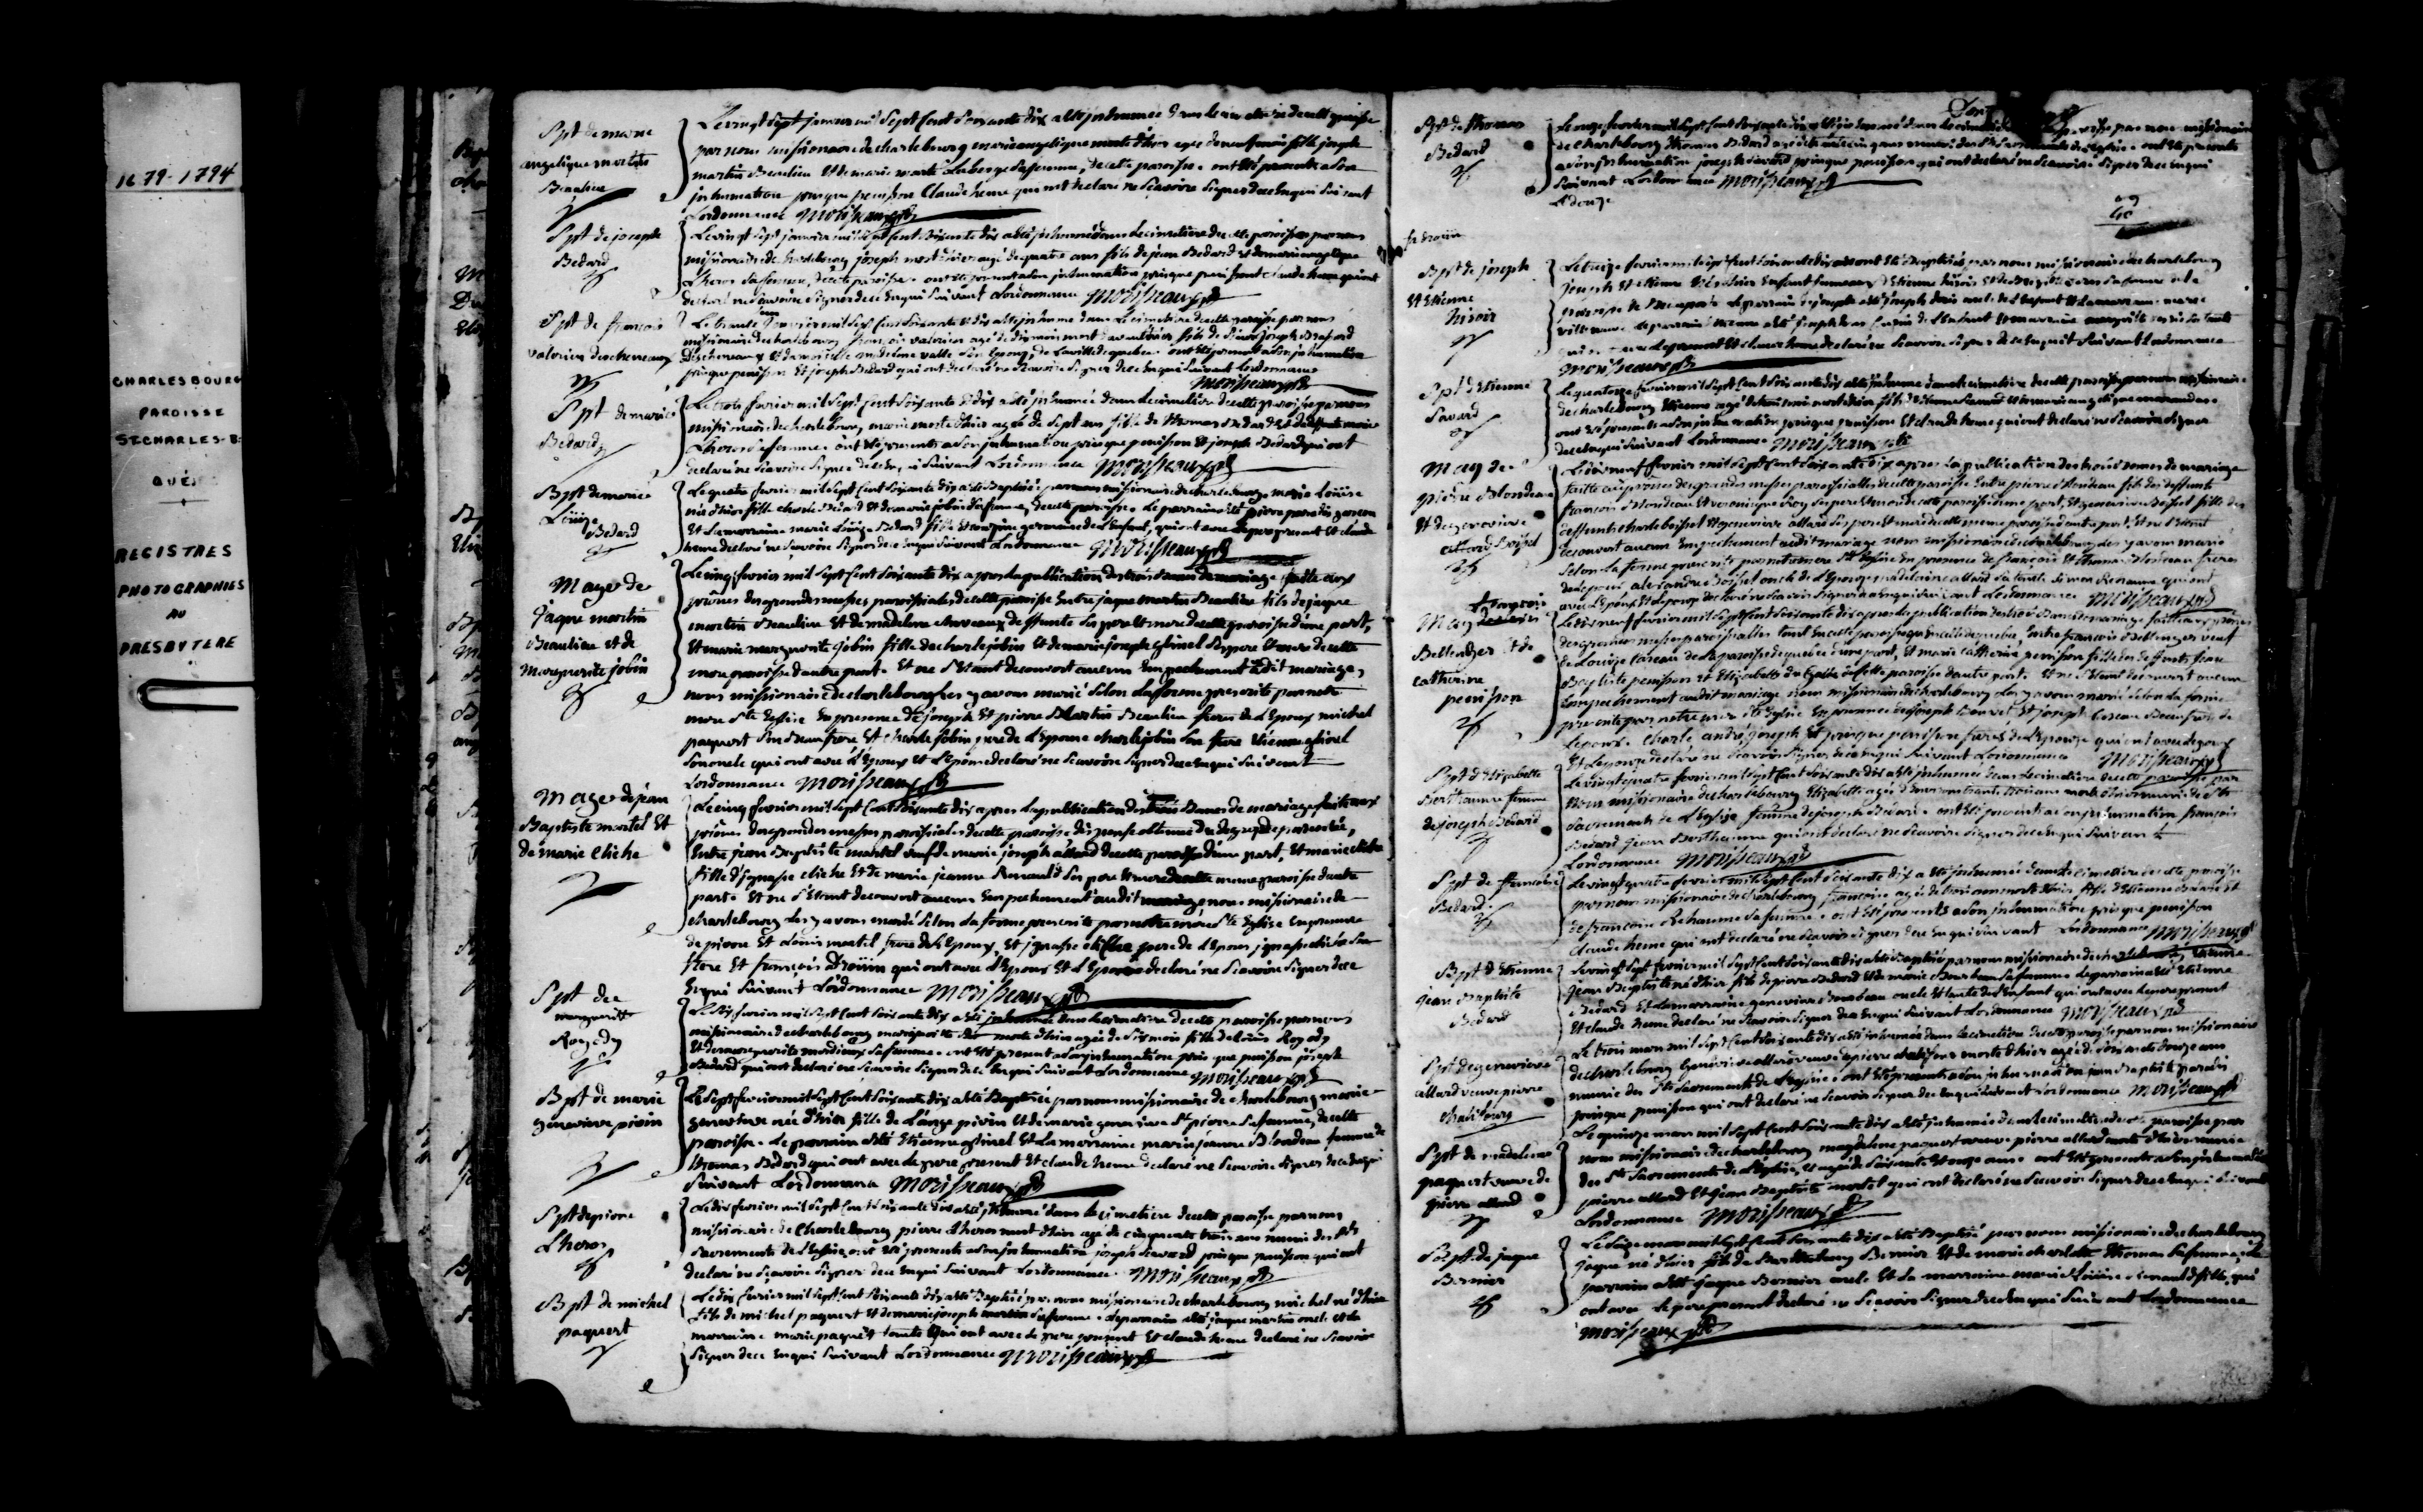 1679-1794
CHARLESBOURG
PAROISSE
ST-CHARLES-B.
QUÉB
REGISTRES
PHOTOGRAPHIES
AU
PRESBYTERE
Spt de marie
angelique martin
Beaulieu
Le vingt Sept janvier mil Sept Cent Soixante dix a été inhumée dans le cimetière de cette paroisse
par nous missionaire de charlebourg marie angelique morte d'hier agée de neuf mois fille joseph
martin Beaulieu Et de marie Laberge Sa femme, de cette paroisse. ont été presents a Son
inhumation prisque penisson Claude heme qui ont declaré ne Scavoire Signer de ce Enqui Suivant
Lordonnance Morisseaux ptr
Spt de joseph
Bedard
Le vingt Sept janvier mil Sept Cent Soixante dix a été inhumé dans le cimetière de cette paroisse par nous
missionaire de charlebourg joseph mort d'hier agé de quatre ans fils de jean Bedard Et de marie angelique
Lheros Sa femme, de cette paroisse. ont été presents a Son inhumation prisque penisson Claude heme qui ont
declaré ne Scavoire Signer de ce Enqui Suivant Lordonnance Morisseaux ptr
Spt de françois
valerien descheneaux
Le trante janvier mil Sept Cent Soixante Et dix a été inhumé dans Le cimetière de cette paroisse par nous
missionaire de charlebourg françois valerien agé de mort fils de Sieur joseph
Descheneaux Et de madelene vallé Son Epouse, de La ville de quebec. ont été presents a Son inhumation
prisque penisson Et joseph Bedard qui ont declaré ne Scavoire Signer de ce Enqui Suivant Lordonnance
Morisseaux ptr
Spt de marie
Bedard
Le trois fevrier mil Sept Cent Soixante Et dix a été inhumée dans Le cimetière de cette paroisse par nous
missionaire de charlebourg marie morte d'hier agée de Sept ans fille de Thomas Bedard Et de marie
Lheros Sa femme. ont été presents a Son inhumation prisque penisson Et joseph Bedard qui ont
declaré ne Scavoire Signer de ce Enqui Suivant Lordonnance Morisseaux ptr
Bpt de marie
Loüise
Bedard
Le quatre fevrier mil Sept Cent Soixante dix a été Baptisée par nous missionaire de charlebourg marie Loüise
née d'hier fille charle Bedard Et de marie jobin Sa femme, de cette paroisse. Le parrain a été pierre paradis garcon
Et La marraine marie Loüise Bedard fille Et cousine germaine de L'Enfant, qui ont avec Le pere present Et claude
heme declaré ne Scavoire Signer de ce Enqui Suivant Lordonnance Morisseaux ptr
Mage de
jaque martin
Beaulieu Et de
Marguerite jobin
Le cinq fevrier mil Sept Cent Soixante dix apres La publication des trois Bans de mariage faitte aux
prônes des grandes messes paroissiales de cette paroisse Entre jaque martin Beaulieu fils de jaque
martin Beaulieu Et de madelene deffunte Ses pere Et mere de cette paroisse d'une part,
Et marie marguerite jobin fille de charle jobin Et de marie joseph glinel Ses pere Et mere de cette
meme paroisse d'autre part. Et ne S'Etant decouvert aucun Empechement au dit mariage,
nous missionaire de charlebourg Les y avons marié Selon La forme prescrite par notre
mere Ste Eglise En presence de joseph Et pierre Martin Beaulieu freres de L'Epoux michel
paquert Son Beaufrere Et charle jobin pere de L'Epouse charle jobin Son frere Etienne glinel
Son oncle qui ont avec L'Epoux Et L'Epouse declaré ne Scavoire Signer de ce Enqui Suivant
Lordonnance Morisseaux ptr
Mage de jean
Baptiste martel Et
de marie cliche
Le cinq fevrier mil Sept Cent Soixante dix apres La publication des trois Bans de mariage faitte aux
prônes des grandes messes paroissiales de cette paroisse dispense obtenue du degré de parenté,
Entre jean Baptiste martel veuf de marie joseph allard de cette paroisse d'une part, Et marie cliche
fille d'ignasse cliche Et de marie jeanne Renauld Ses pere Et mere de cette meme paroisse d'autre
part. Et ne S'Etant decouvert aucun Empechement au dit mariage nous missionaire de
charlebourg Les y avons marié Selon La forme prescrite par notre mere Ste Eglise En presence
de pierre Et Loüis martel freres de L'Epoux, Et ignasse cliche pere de L'Epouse ignasse cliche Son
frere Et françois droüin qui ont avec L'Epoux Et L'Epouse declaré ne Scavoire Signer de ce
Enqui Suivant Lordonnance Morisseaux ptr
Spt de
marguerite
Roy
Le Six fevrier mil Sept Cent Soixante dix a été inhumée dans Le cimetière de cette paroisse par nous
missionaire de charlebourg marguerite morte d'hier agée de Six mois fille de Loüis Roy
Et de marguerite Sa femme. ont été present a Son inhumation prisque penisson joseph
Bedard qui ont declaré ne Scavoire Signer de ce Enqui Suivant Lordonnance Morisseaux ptr
Bpt de marie
genevieve pivin
Le Sept fevrier mil Sept Cent Soixante dix a été Baptisée par nous missionaire de charlebourg marie
genevieve née d'hier fille de L'ange pivin Et de marie genevieve St pierre Sa femme, de cette
paroisse. Le parrain a été Etienne glinel Et La marraine marie jeanne Blondeau femme de
thomas Bedard qui ont avec Le pere present Et claude heme declaré ne Scavoire Signer de ce Enqui
Suivant Lordonnance Morisseaux ptr
Spt de pierre
Lheros
Le dix fevrier mil Sept Cent Soixante dix a été inhumé dans Le cimetiere de cette paroisse par nous
missionaire de Charlebourg pierre Lheros mort d'hier agé de cinquante trois ans munie des Sts
Sacrements de L'Eglise, ont été presents a Son inhumation joseph Savard prisque penisson qui ont
declaré ne Scavoire Signer de ce Enqui Suivant Lordonnance. Morisseaux ptr
Bpt de michel
paquert
Le dix fevrier mil Sept Cent Soixante dix a été Baptisé par nous missionaire de charlebourg michel né d'hier
fils de michel paquert Et de marie joseph martin Sa femme. Le parrain a été jaque martin oncle et La
marraine marie paquert tante qui ont avec Le pere present Et claude heme declaré ne Scavoire
Signer de ce Enqui Suivant Lordonnance Morisseaux ptr
Spt de thomas
Bedard
Le onze fevrier mil Sept Cent Soixante dix a été inhumé dans Le cimetière paroisse par nous missionaire
de charlebourg thomas Bedard agé de ans munie des Sts Sacrements de L'Eglise. ont été presents
a Son inhumation joseph Savard prisque penisson qui ont declaré ne Scavoire Signer de ce Enqui
Suivant Lordonnance Morisseaux ptr
Le douze
Bpt de joseph
Et Etienne
Le treize fevrier mil Sept Cent Soixante dix ont été Baptisés par nous missionaire de charlebourg
joseph Et Etienne nés d'hier Enfant jumeaux d'Etienne Sa femme de la
paroisse de Le parrain de joseph a été joseph oncle de L'Enfant Et La marraine marie
villeneuve Le parrain d'Etienne a été joseph de L'Enfant Et marraine marguerite
Le pere present Et claude heme declaré ne Scavoire Signer de ce Enqui Suivant Lordonnance
Morisseaux ptr
Spt d'Etienne
Savard
Le quatorze fevrier mil Sept Cent Soixante dix a été inhumé dans Le cimetière de cette paroisse par nous missionaire
de charlebourg Etienne agé de mort d'hier fils d'Etienne Savard Et de marie angelique
ont été presents a Son inhumation prisque penisson Et claude heme qui ont declaré ne Scavoire Signer
de ce Enqui Suivant Lordonnance Morisseaux ptr
Mag de
pierre Blondeau
Et de genevieve
Boissel
Le dix neuf fevrier mil Sept Cent Soixante dix apres La publication des trois Bans de mariage
faitte aux prônes des grandes messes paroissialles de cette paroisse Entre pierre Blondeau fils des deffunts
françois Blondeau Et veronique Roy Ses pere Et mere de cette paroisse d'une part, Et genevieve Boissel fille des
deffunts charle boissel Et genevieve allard Ses pere Et mere de cette meme paroisse d'autre part, Et ne S'Etant
decouvert aucun Empechement au dit mariage nous missionaire de charlebourg Les y avons marié
Selon La forme prescrite par notre mere Ste Eglise En presence de françois Et thomas Blondeau freres
de L'Epoux alexandre Boissel oncle de L'Epouse madelaine allard Sa tante qui ont
avec L'Epoux Et L'Epouse declaré ne Scavoir Signer de ce Enqui Suivant Lordonnance Morisseaux ptr
françois
Mag
Bellenger Et de
catherine
penisson
Le dix neuf fevrier mil Sept Cent Soixante dix apres La publication des trois Bans de mariage faitte aux prônes
des grandes messes paroissialles tant En cette paroisse qu'En celle de quebec Entre françois Bellenger veuf
de Loüise Careau de La paroisse de quebec d'une part, Et marie catherine penisson fille des deffunts jean
Baptiste penisson Et Elizabette de cette paroisse d'autre part. Et ne S'Etant decouvert aucun
Empechement au dit mariage nous missionaire de charlebourg Les y avons marié Selon La forme
prescrite par notre mere Ste Eglise En presence de joseph Et joseph Careau Beaufrere de
Lepoux. Charle andré, joseph Et prisque penisson freres de L'Epouse qui ont avec Lepoux
Et Lepouse declaré ne Scavoir Signer de ce Enqui Suivant Lordonnance Morisseaux ptr
Spt d'Elizabette
Berthiaume femme
de joseph Bedard
Le vingt quatre fevrier mil Sept Cent Soixante dix a été inhumée dans Le cimetière de cette paroisse par
Nous missionaire de charlebourg Elizabette agée d'Environ trante trois ans morte d'hier munie des Sts
Sacrements de L'Eglise femme de joseph Bedard. ont été presents a Son inhumation françois
Bedard jean Berthiaume qui ont declaré ne Scavoire Signer de ce Enqui Suivant
Lordonnance Morisseaux ptr
Spt de francoise
Bedard.
Le vingt quatre fevrier mil Sept Cent Soixante dix a été inhumée dans Le cimetière de cette paroisse
par nous missionaire de charlebourg francoise agée de trois ans morte d'hier fille d'Etienne Bedard Et
de francoise Rehaume Sa femme. ont été presents a Son inhumation prisque penisson
Claude heme qui ont declaré ne Scavoir Signer de ce Enqui Suivant Lordonnance Morisseaux ptr
Bpt d'Etienne
jean Baptiste
Bedard
Le vingt Sept fevrier mil Sept Cent Soixante dix a été Baptisé par nous missionaire de charlebourg Etienne
jean Baptiste né d'hier fils de pierre Bedard Et de marie Sa femme. Le parrain a été Etienne
Bedard Et La marraine genevieve oncle Et tante de L'Enfant qui ont avec Le pere present
Et claude heme declaré ne Scavoir Signer de ce Enqui Suivant Lordonnance Morisseaux ptr
Spt de genevieve
allard veuve pierre
Chalifourg
Le trois mars mil Sept Cent Soixante dix a été inhumée dans Le cimetière de cette paroisse par nous missionaire
de charlebourg Genevieve allard veuve de pierre chalifour morte d'hier agée de Soixante douze ans
munie des Sts Sacrements de L'Eglise. ont été presents a Son inhumation jean Baptiste paradis
prisque penisson qui ont declaré ne Scavoir Signer de ce Enqui Suivant Lordonnance Morisseaux ptr
Spt de madelene
paquert veuve de
pierre allard
Le quinze mars mil Sept Cent Soixante dix a été inhumée dans Le cimetière de cette paroisse par
nous missionaire de charlebourg magdelene paquert veuve pierre allard morte d'hier munie
des Sts Sacrements de L'Eglise, et agée de Soixante Et onze ans. ont été presents a Son inhumation
pierre allard Et jean Baptiste martel qui ont declaré ne Scavoir Signer de ce Enqui Suivant
Lordonnance Morisseaux ptr
Bapt. de jaque
Bernier
Le Seize mars mil Sept Cent Soixante dix a été Baptisé par nous missionaire de charlebourg
jaque né d'hier fils de Barthelemy Bernier Et de marie charlotte thomas Sa femme, Le
parrain a été jaque Bernier oncle Et La marraine marie Loüise Renauld fille, qui
ont avec Le pere present declaré ne Scavoir Signer de ce Enqui Suivant Lordonnance
Morisseaux ptr